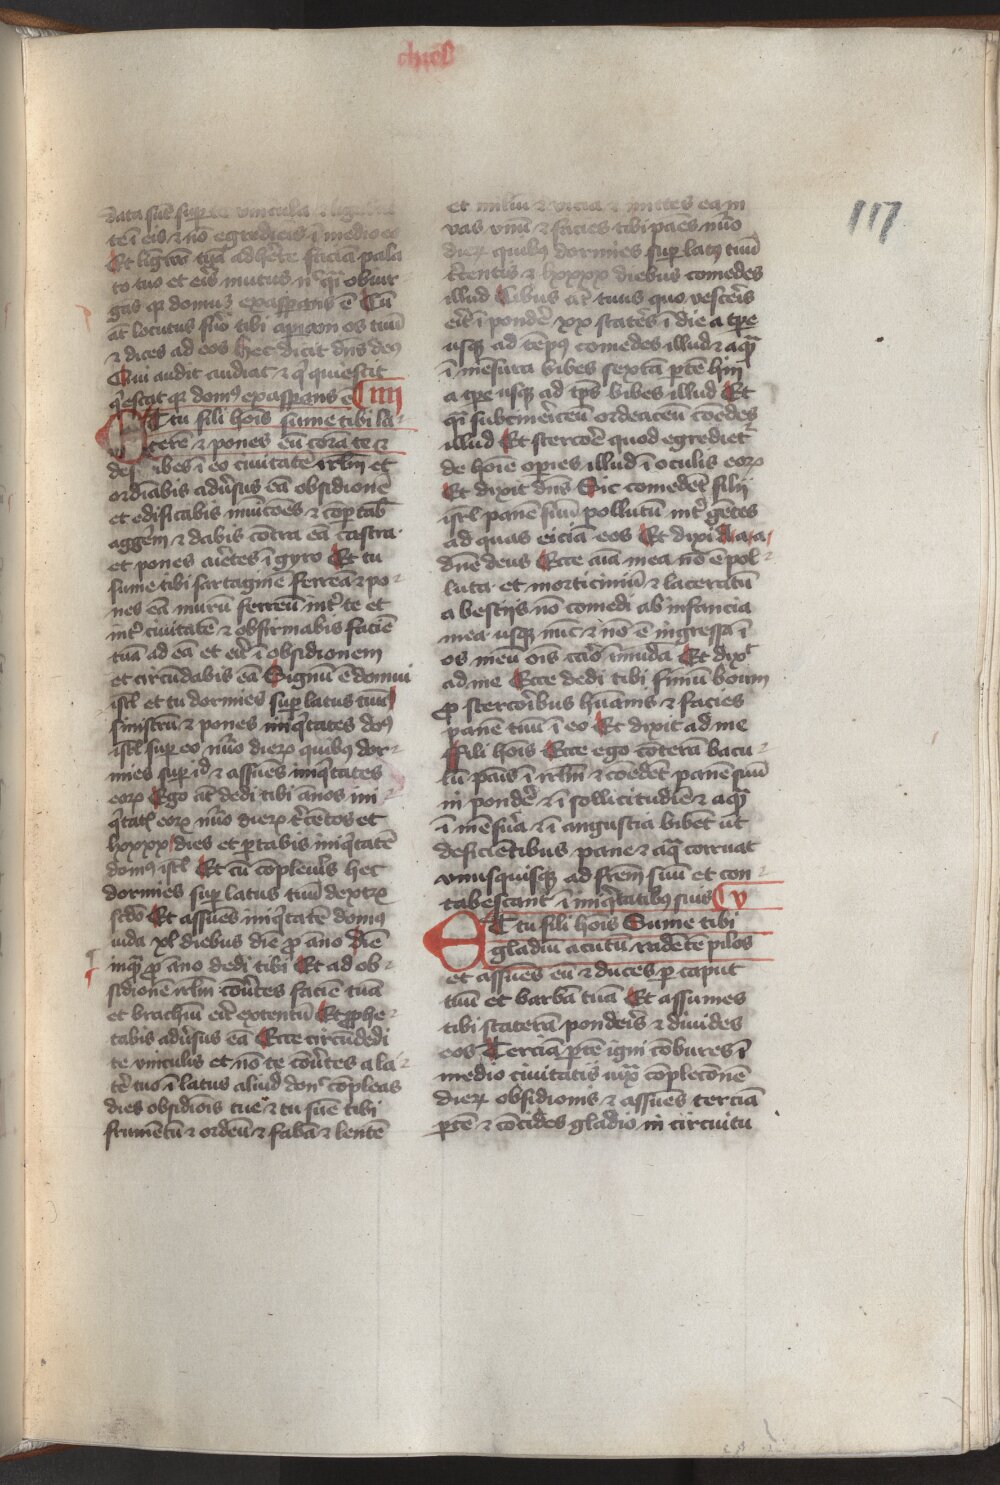 chiel
117
data sūt super te vincula ⁊ ligabūt
te ī eis ⁊ nō egredieris ī medio eoꝝ
Et liguā tuā adherere faciā pala
to tuo et eris mutus nec quasi obiur
gās qꝛ domus exasꝑans ē Cū
āt locutus fuero tibi aperiam os tuū
⁊ dices ad eos hec dicit dn̄s deus
Qui audit audiat ⁊ qͥ quiescit
qͥescat qꝛ domus exasꝑans ē C iiii
Et tu fili hoīs sume tibi la
terē ⁊ pones eū corā te ⁊
describes ī eo ciuitatē irlm̄ et
ordīabis adūsus eā obsidionē
et edificabis mūitiōes ⁊ cōportab
aggerem ⁊ dabis cōtra eā castra
et pones arietes ī gyro Et tu
sume tibi sartaginē ferreā ⁊ po
nes eā murū ferreū inter te et
inter ciuitatē ⁊ obfirmabis faciē
tuā ad eā et erit ī obsidionem
et circūdabis eā Signū ē domui
isrl̄ et tu dormies super latus tuū
sinistrū ⁊ pones iniqͥtates domus
isrl̄ super eo nūo dierꝝ quibus dor
mies super id ⁊ assumes iniqͥtates
eorꝝ Ego āt dedi tibi ānos ini
qͥtatis eorꝝ nūo dierꝝ trecētos et
lxxxx dies et portabis iniqͥtatē
domus isrl̄ Et cū cōpleueris hec
dormies super latus tuū dextrꝝ
scdō Et assumes iniqͥtatē domus
iuda xl diebus diē pro āno diē
inquā pro āno dedi tibi Et ad ob
sidionē irlm̄ cōūtes faciē tuā
et brachiū erit extentū Et prophe
tabis adūsus eā Ecce circūdedi
te vinculis et nō te cōūtes a la
tere tuo ī latus aliud donec cōpleas
dies obsidiōis tue ⁊ tu sume tibi
frumētū ⁊ ordeū ⁊ fabā ⁊ lentē
et miliū ⁊ viciā ⁊ mittes ea in
vas vnū ⁊ facies tibi panes nūo
dierꝝ quibus dormies super latus tuū
trecentis ⁊ lxxxx diebus comedes
illud Cibus āt tuus quo vesceris
erit ī pondere xx stateres ī die a tpe
usqꝫ ad tempus comedes illud ⁊ aquā
ī mesura bibes sextā ptē hin
a tpe usqꝫ ad tps bibes illud Et
quasi subcinericeū ordeaceū cōedes
illud Et stercore quod egredietur
de hoīe operies illud ī oculis eorꝝ
Et dixit dn̄s Sic comedēt filii
isrl̄ panē suū pollutū inter gētes
ad quas eiciā eos Et dixi a a a
dn̄e deus Ecce aīa mea nō ē pol
luta et morticiniū ⁊ laceratū
a bestijs nō comedi ab infancia
mea usqꝫ nūc ⁊ nō ē ingressa ī
os meū oīs caro īmūda Et dixit
ad me Ecce dedi tibi fimū boum
pro stercoribus hūanis ⁊ facies
panē tuū ī eo Et dixit ad me
Fili hoīs Ecce ego cōterā bacu
lū panis ī irlm̄ ⁊ cōedēt panē suū
in pondere ⁊ ī sollicitudīe ⁊ aquā
ī mēsura ⁊ ī angustia bibēt ut
deficiētibus pane ⁊ aqua corruat
vnusquisqꝫ ad frēm suū et con
tabescant ī iniqͥtatibus suis C v
Et tu fili hoīs Sume tibi
gladiū acutū radēte pilos
et assumes eū ⁊ duces per caput
tuū et barbā tuā Et assumes
tibi staterā ponderis ⁊ diuides
eos Terciā ptē igni cōbures ī
medio ciuitatis iuxta cōplecōnē
dierꝝ obsidionis ⁊ assumes terciā
ptē ⁊ cōcides gladio in circuitu